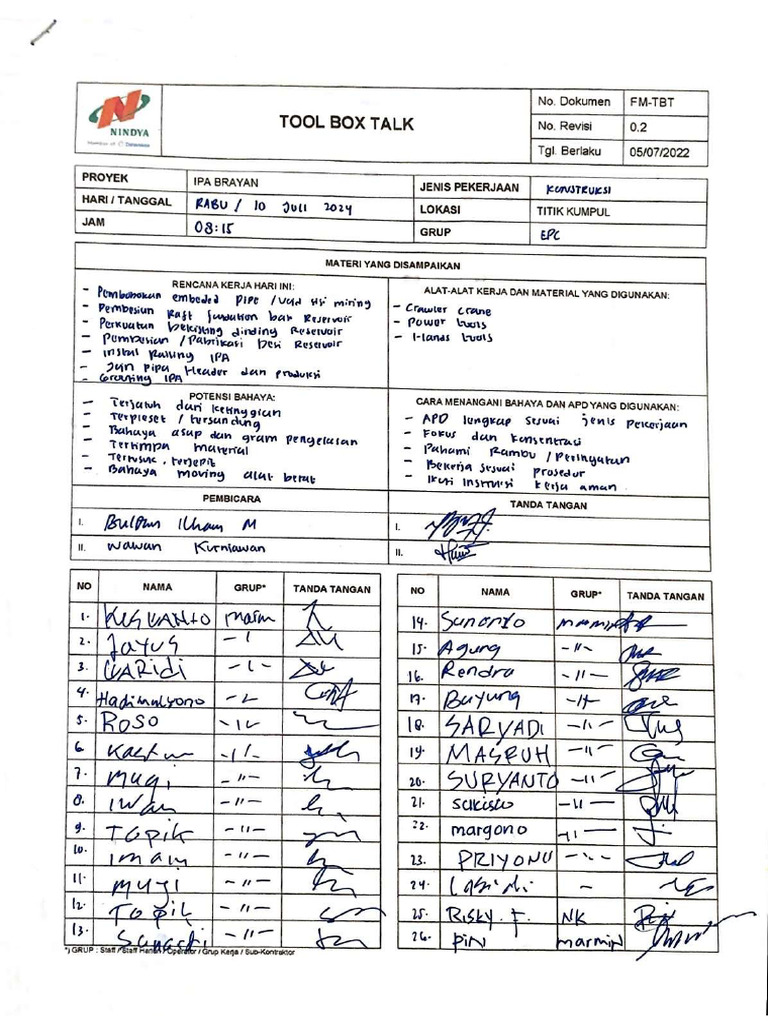 NINDYA
TOOL BOX TALK
No. Dokumen FM-TBT
No. Revisi 0.2
Tgl. Berlaku 05/07/2022
PROYEK IPA BRAYAN
JENIS PEKERJAAN KONSTRUKSI
HARI / TANGGAL RABU / 10 JULI 2024
LOKASI TITIK KUMPUL
JAM 08:15
GRUP EPC
MATERI YANG DISAMPAIKAN
RENCANA KERJA HARI INI:
- Pembobokan embeded pipe / miring
- Pembesian Raft fundation bar Reservoir
- Perkuatan bekisting dinding Reservoir
- Pembesian / Pabrikasi besi Reservoir
- Instal Railing IPA
- Join pipa Header dan produksi
- Grouting IPA
ALAT-ALAT KERJA DAN MATERIAL YANG DIGUNAKAN:
- Crawler crane
- Power tools
- Hands tools
POTENSI BAHAYA:
- Terjatuh dari ketinggian
- Terpleset / tersandung
- Bahaya asap dan gram pengelasan
- Tertimpa material
- Tertusuk, terjepit
- Bahaya moving alat berat
CARA MENANGANI BAHAYA DAN APD YANG DIGUNAKAN:
- APD lengkap sesuai jenis Pekerjaan
- Fokus dan Konsentrasi
- Pahami Rambu / Peringatan
- Bekerja sesuai prosedur
- Ikuti Instruksi kerja aman
PEMBICARA TANDA TANGAN
I. Ilham M I.
II. Wawan Kurniawan II.
NO NAMA GRUP* TANDA TANGAN
1. KUSWANTO marm
2. JAYUS -"-
3. WARIDI -"-
4. Hadimulyono -"-
5. ROSO -"-
6. -"-
7. mugi -"-
8. IWAN -"-
9. TOPIK -"-
10. imam -"-
11. mugi -"-
12. TOPIK -"-
13. -"-
*) GRUP : Staff / Staff Harian / Operator / Grup Kerja / Sub-Kontraktor
NO NAMA GRUP* TANDA TANGAN
14. Sunarto marmin
15. Agung -"-
16. Rendra -"-
17. Buyung -"-
18. SARYADI -"-
19. MASRUH -"-
20. SURYANTO -"-
21. sukisto -"-
22. margono -"-
23. PRIYONO -"-
24. -
25. RISKY. F. NK
26. PIN marmin